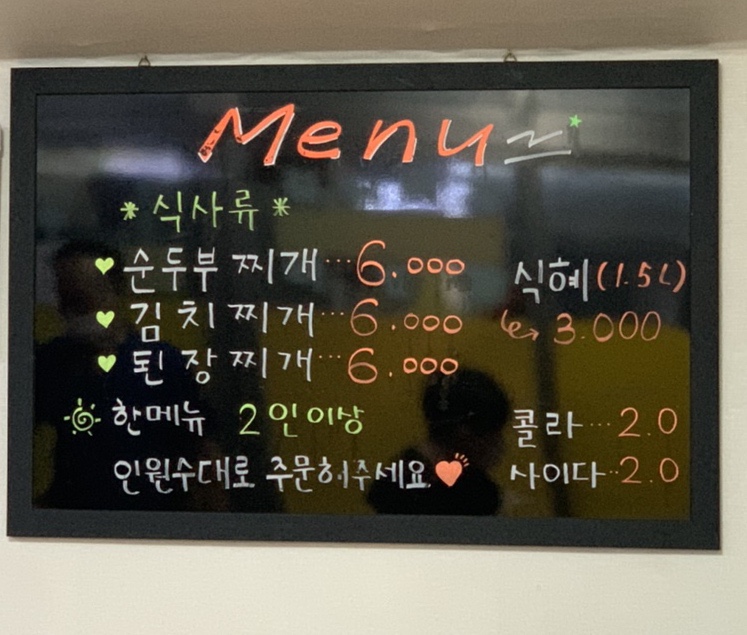 Menu
*식사류*
♥순두부 찌개…6.000
♥김치찌개…6.000
♥된장찌개…6.000
한메뉴 2인이상
인원수대로 주문해주세요♥
식혜(1.5L)
↳ 3.000
콜라…2.0
사이다..2.0